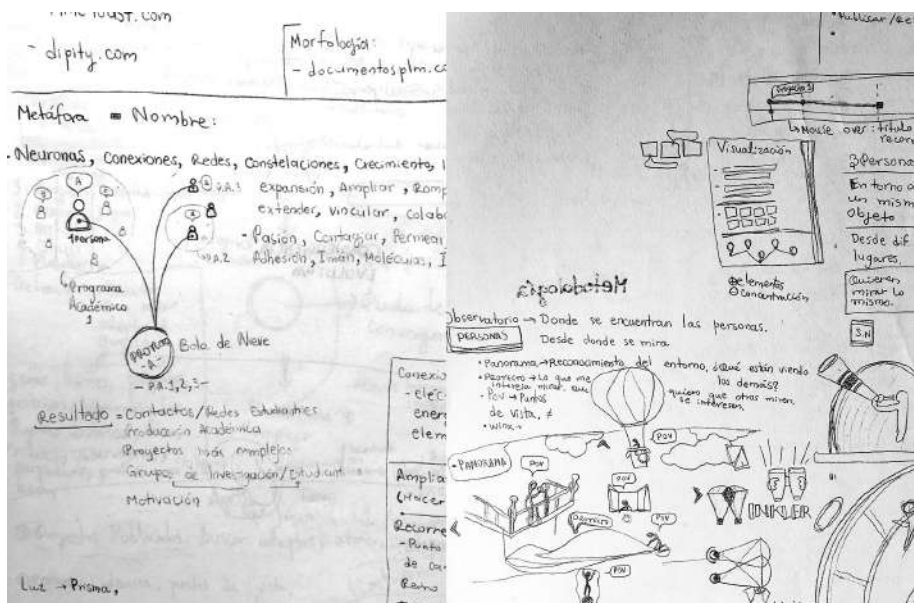 - dipity.com
Morfología:
- documentosplm.co
Metáfora = Nombre:
Neuronas, Conexiones, Redes, Constelaciones, Crecimiento,
expansión, Ampliar,
extender, Vincular, colab
- Pasión, Contagiar, Permear
Adhesión, Imán, Moléculas,
A
1 Persona
P.A.1
P.A.2
Programa
Académico
1
- A -
Bola de Nieve
- P.A. 1,2,3 -
Resultado = Contactos/Redes Estudiantiles
Producción Académica
Proyectos más complejos
Grupos de Investigación/Estudiant
Motivación
Luz → Prisma,
Conexio
- eléc
ener
elem
Amplia
(Hacer
Recorre
- Punto
de
Publicar/
Proyecto 1
↳ Mouse over: titulo
Visualización
⊕ elementos
⊖ concentración
3 Persona
En torno a
un mism
objeto
Desde dif
lugares.
Quieren
mirar lo
mismo.
S.N
Metodología
Observatorio → Donde se encuentran las personas.
PERSONAS
Desde donde se mira
• Panorama → Reconocimiento del entorno, ¿Qué están viendo
los demás?
→ Lo que me
interesa mirar,
quiero que otras miren,
se interesen.
- POV → Puntos
de vista, ≠
- PANORAMA
POV
POV
POV
POV
POV
INKLER